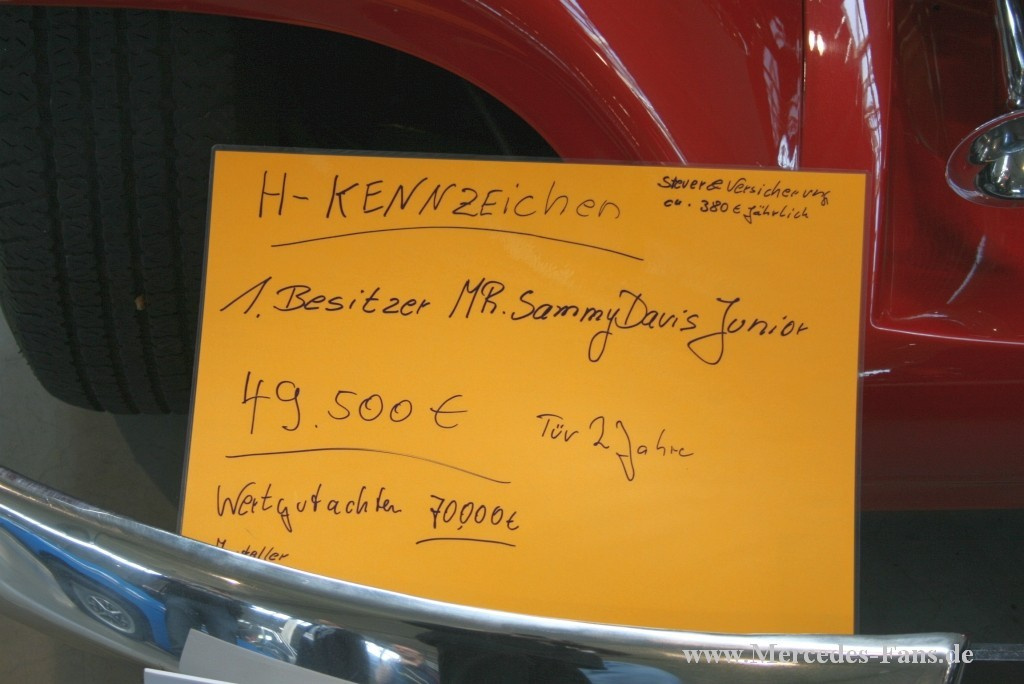 H-KENNZEichen
Steuer & Versicherung
ca. 380 € Jährlich
1. Besitzer MR. Sammy Davis Junior
49.500 €
Tüv 2 Jahre
Wertgutachten 70.000 €
www.Mercedes-Fans.de